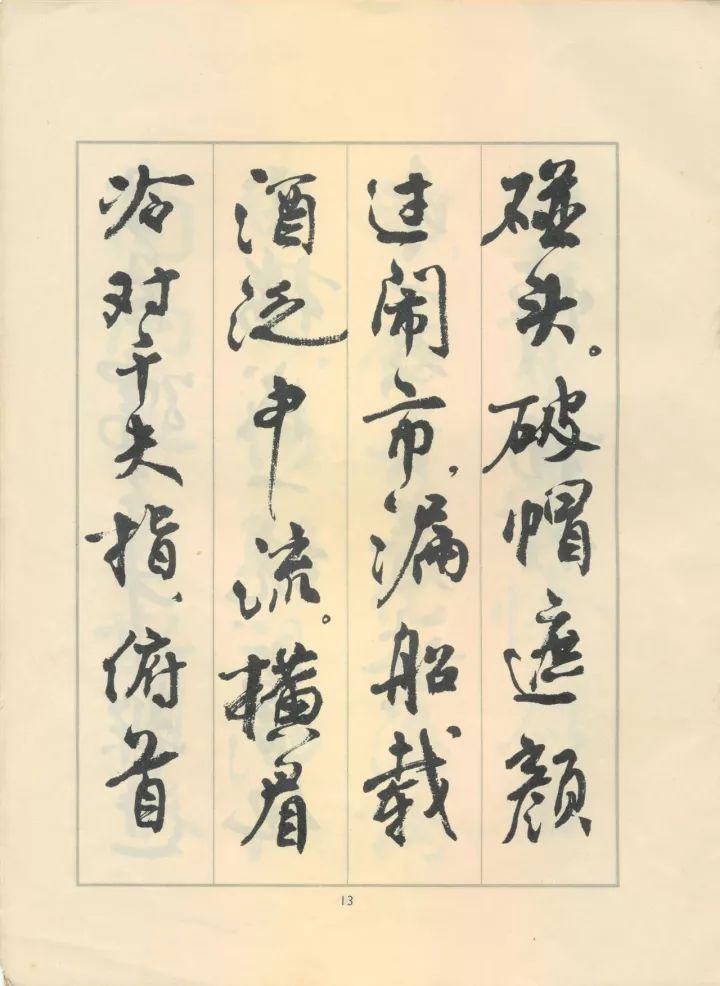 碰头。破帽遮颜
过闹市，漏船载
酒泛中流。横眉
冷对千夫指，俯首
13